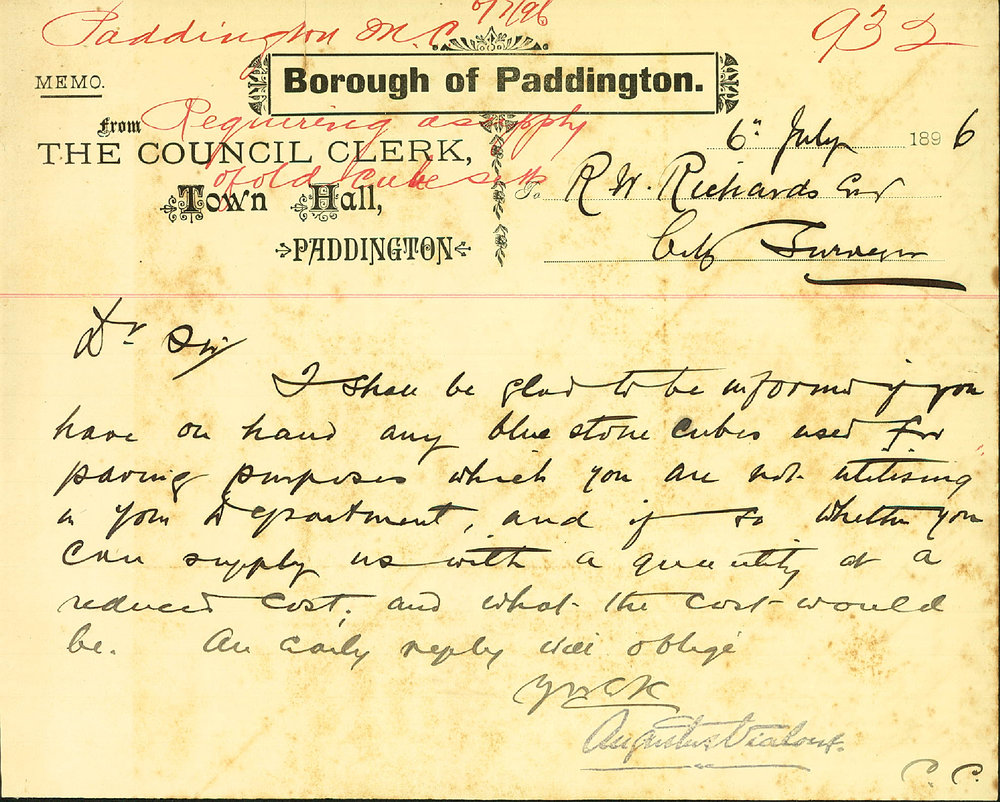 Paddington M.C 6/7/96
932
MEMO.
Borough of Paddington.
From
Requiring a supply
THE COUNCIL CLERK,
of old cube setts
Town Hall,
PADDINGTON
6" July 1896
To R. W. Richards Esq
City Surveyor
Dr Sir
I shall be glad to be informed if you
have on hand any blue stone cubes used for
paving purposes which you are not utilising
in your Department, and if so whether you
can supply us with a quantity at a
reduced cost, and what the cost would
be. An early reply will oblige
Augustus Vialoux
C. C.